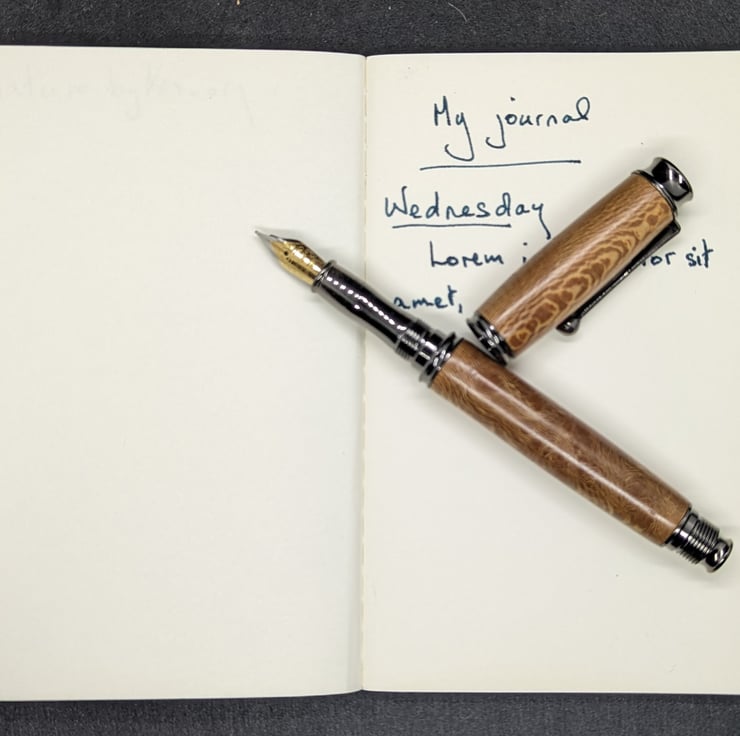 My journal
Wednesday
Lorem i or sit
amet,